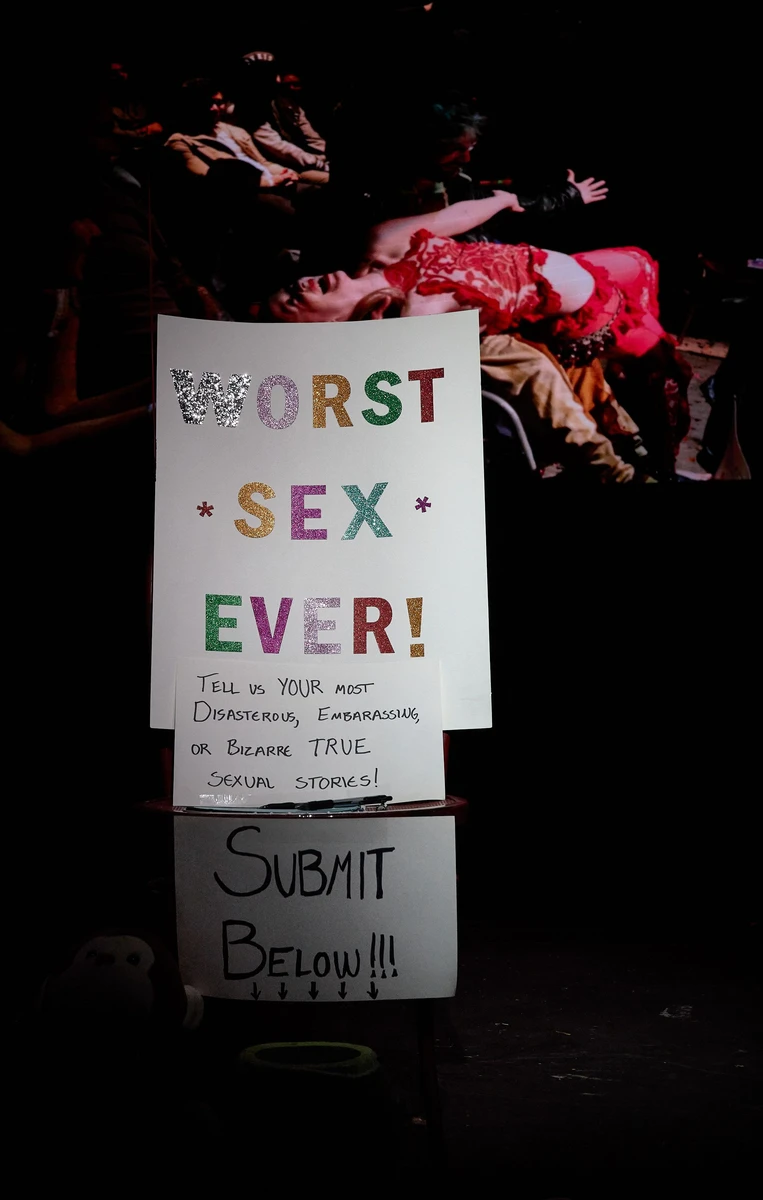 WORST
* SEX *
EVER!
TELL US YOUR MOST
DISASTEROUS, EMBARASSING,
OR BIZARRE TRUE
SEXUAL STORIES!
SUBMIT
BELOW!!!